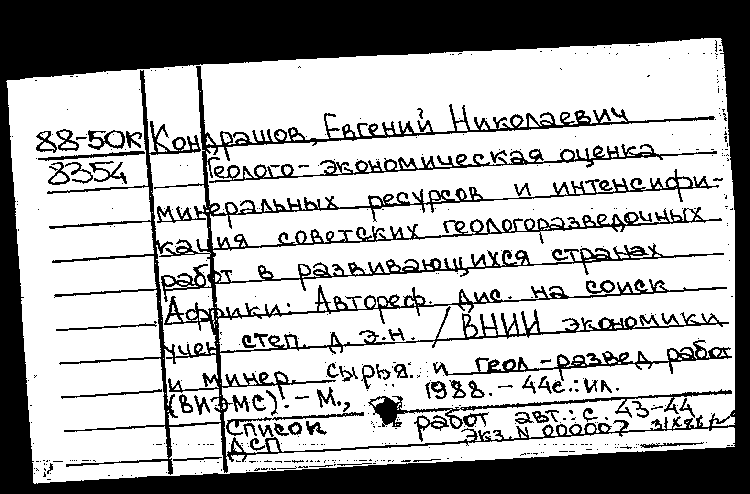 88-50К Кондрашов, Евгений Николаевич
8354 Геолого-экономическая оценка
минеральных ресурсов и интенсифи-
кация советских геологоразведочных
работ в развивающихся странах
Африки: Автореф. дис. на соиск
учен степ. д. э.н. / ВНИИ экономики
и минер. сырья. и геол-развед работ
(ВИЭМС).- М., 1988. - 44с.: ил.
Список работ авт.: с. 43-44
ДСП экз. N 000007